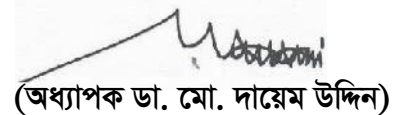 (অধ্যাপক ডা. মো. দায়েম উদ্দিন)